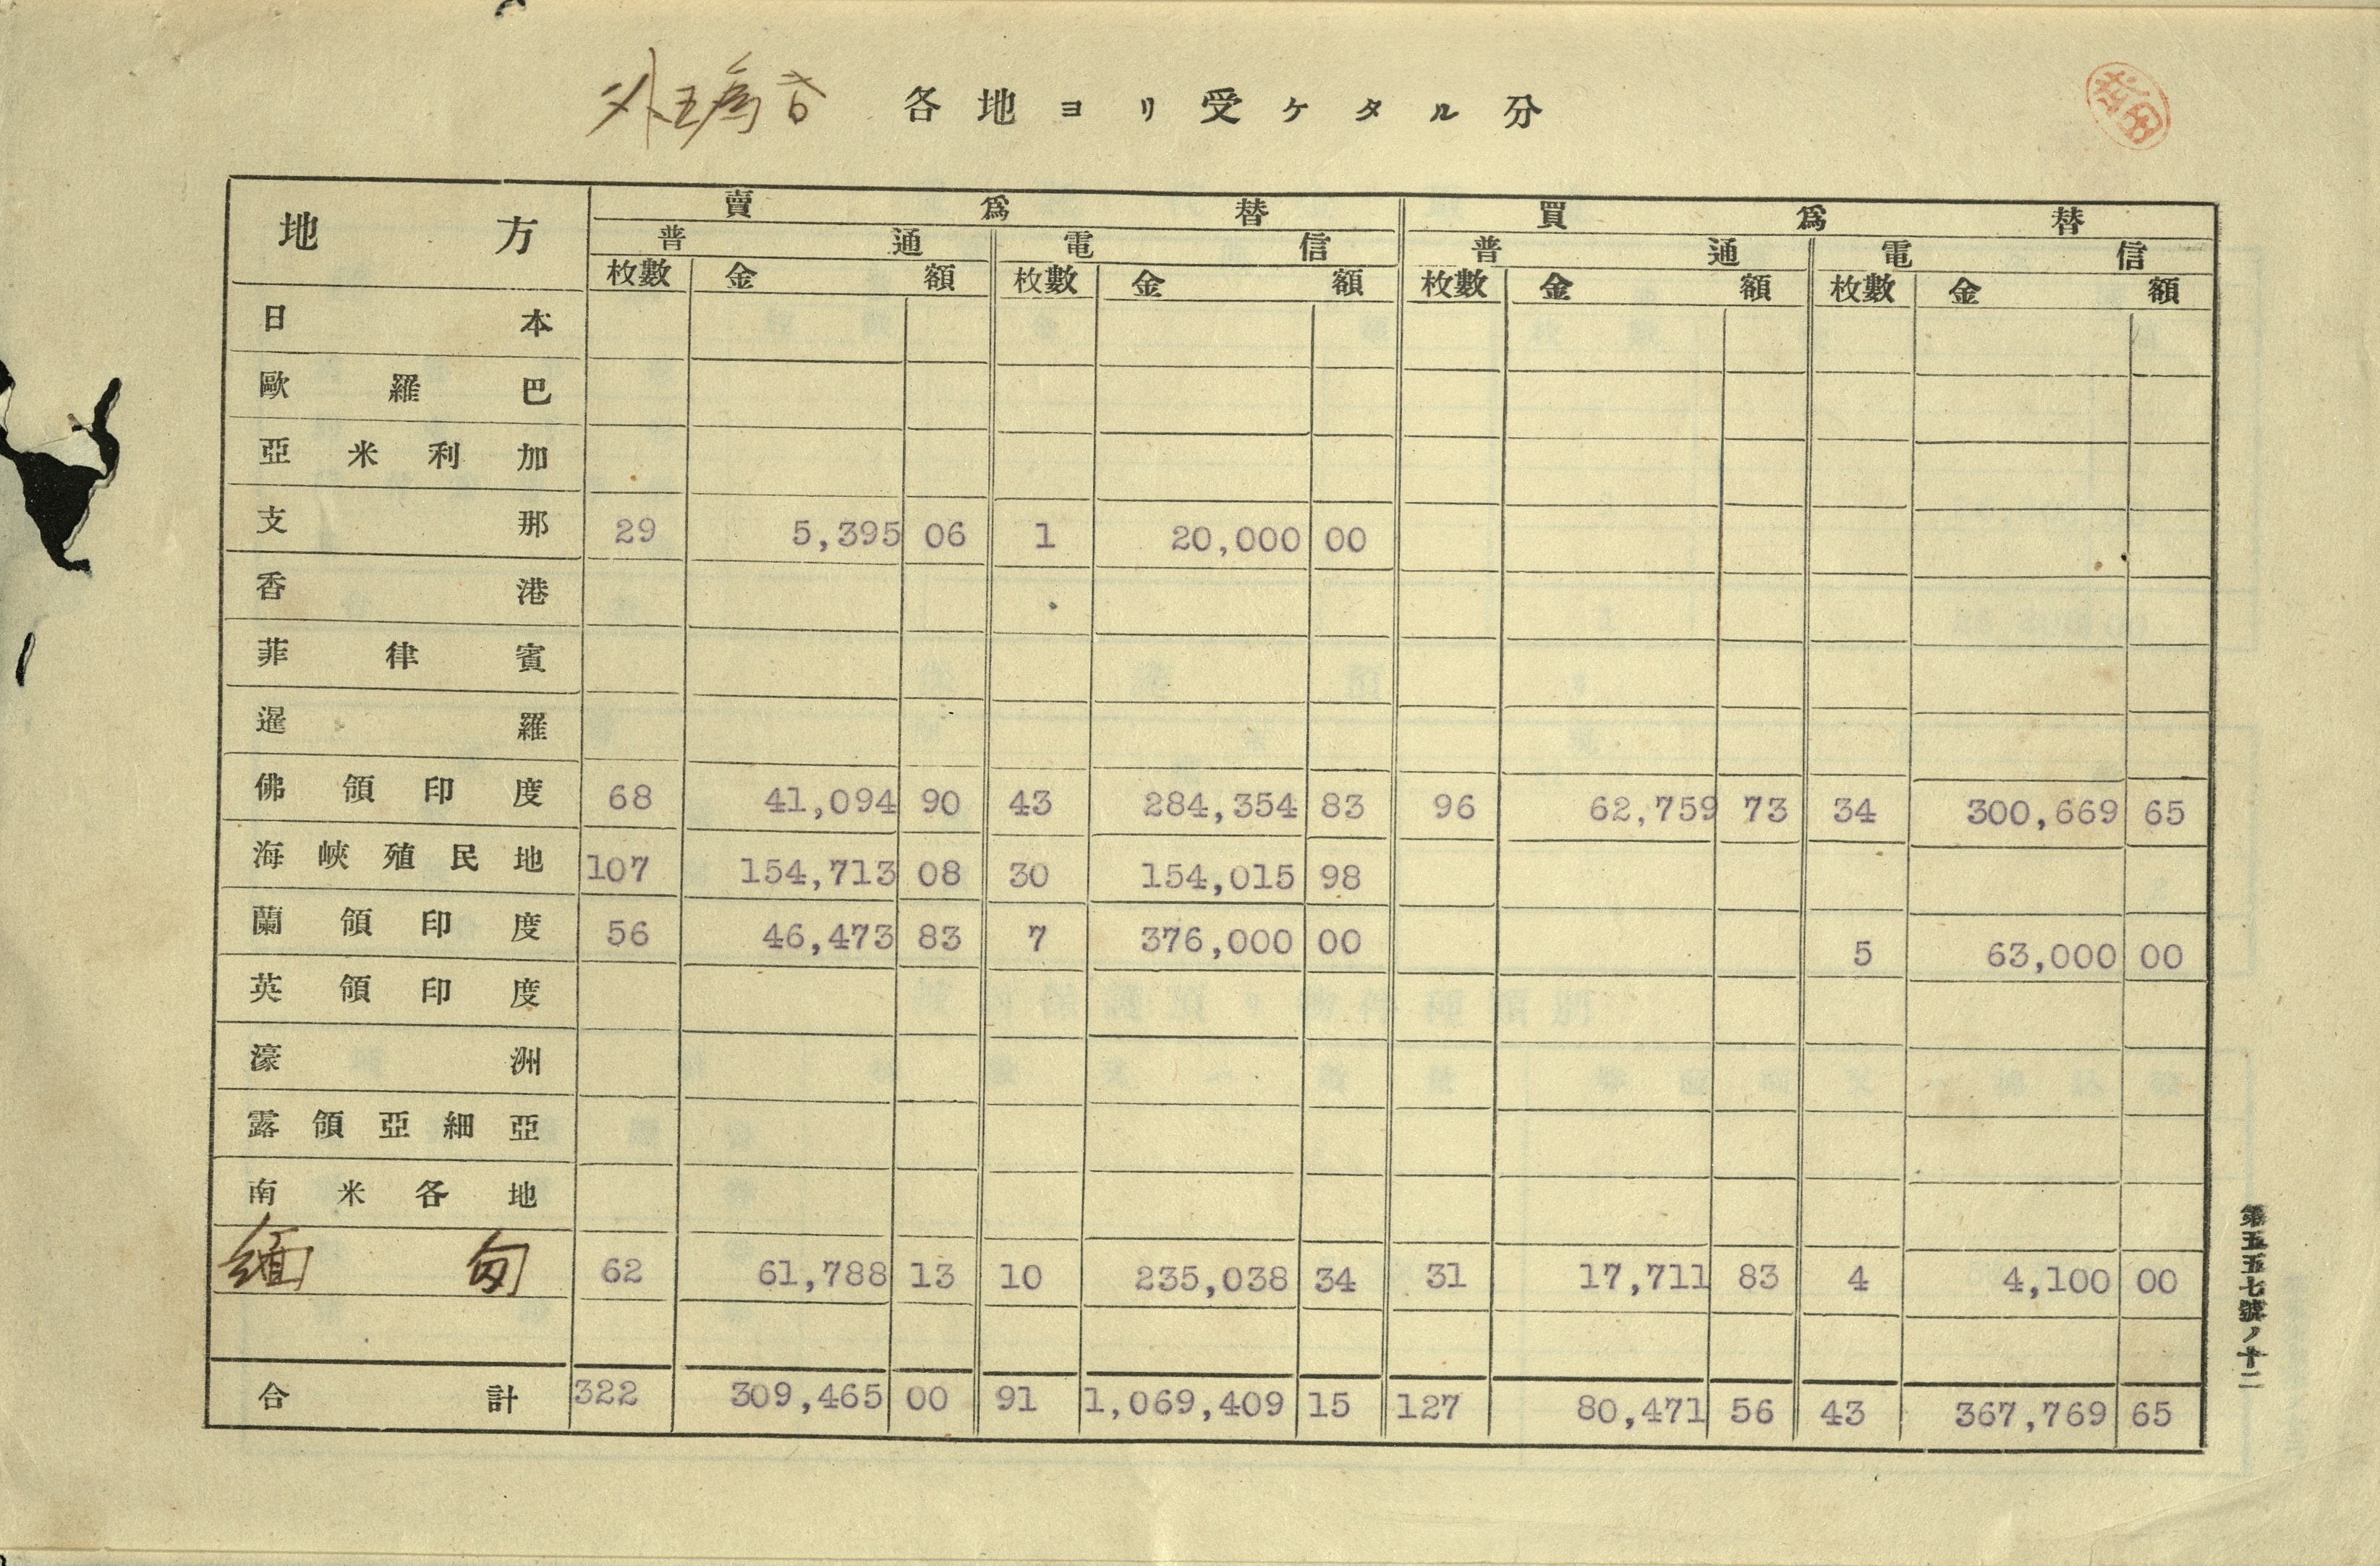 外国為替 各地ヨリ受ケタル分
地方 賣爲替 買爲替
普通 電信 普通 電信
枚數 金額 枚數 金額 枚數 金額 枚數 金額
日本
歐羅巴
亞米利加
支那 29 5,395 06 1 20,000 00
香港
菲律賓
暹羅
佛領印度 68 41,094 90 43 284,354 83 96 62,759 73 34 300,669 65
海峽殖民地 107 154,713 08 30 154,015 98
蘭領印度 56 46,473 83 7 376,000 00 5 63,000 00
英領印度
濠洲
露領亞細亞
南米各地
緬甸 62 61,788 13 10 235,038 34 31 17,711 83 4 4,100 00
合計 322 309,465 00 91 1,069,409 15 127 80,471 56 43 367,769 65
第五五七號ノ十二